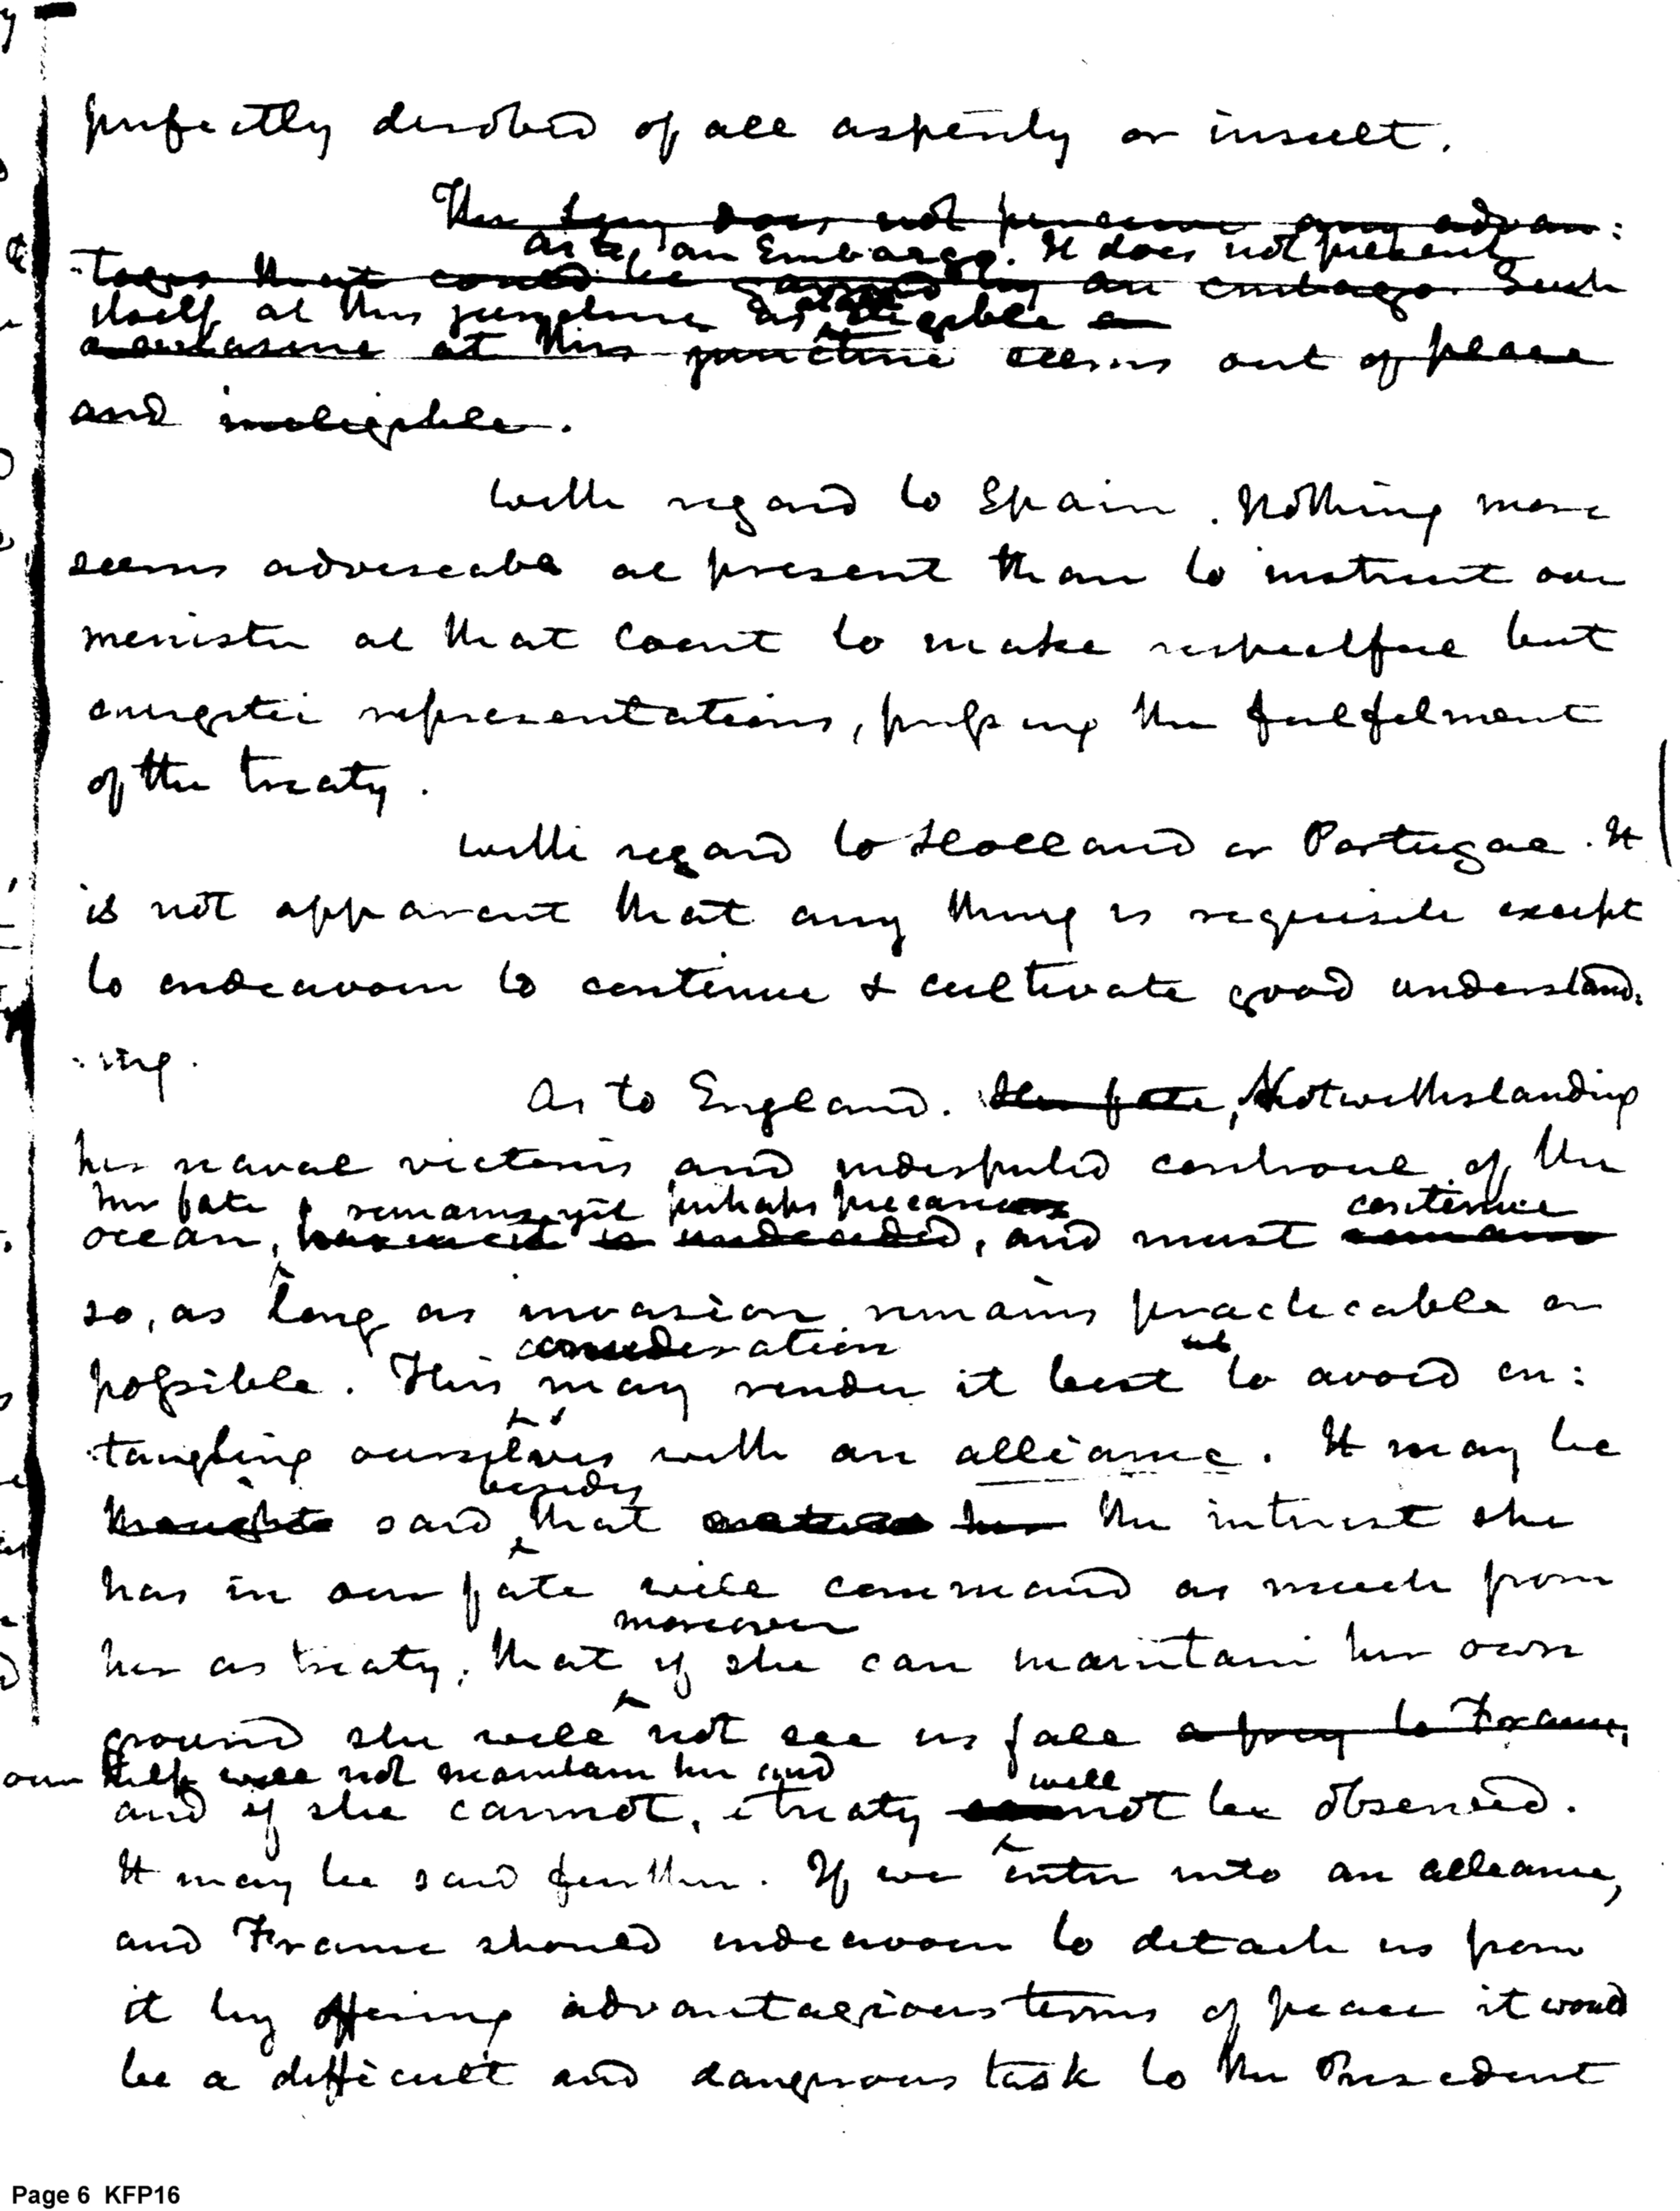 perfectly devoid of all asperity or insult.
The Secy does not perceive any advan:
as to, an Embargo. It does not present
:tages that could be gained by an embargo. Such
itself at this juncture as eligible
a measure at this juncture seems out of place
and ineligible.
With regard to Spain. Nothing more
seems adviseable at present than to instruct our
minister at that Court to make respectful but
energetic representations, pressing the fulfilment
of the treaty.
With regard to Holland or Portugal. It
is not apparent that any thing is requisite except
to endeavour to continue & cultivate good understand:
:ing.
As to England. Her fate, Notwithstanding
her naval victories and undisputed controul of the
her fate remains yet perhaps precarious continue
ocean, is undecided, and must remain
so, as long as invasion remains practicable or
consideration us
possible. This may render it best to avoid en:
:tangling ourselves with an alliance. It may be
besides
thought said that her the interest she
has in our fate will command as much from
moreover
her as treaty; that if she can maintain her own
ground she will not see us fall a prey to France,
our help will not maintain her and will
and if she cannot, a treaty not be observed.
It may be said further. If we enter into an alliance,
and France should endeavour to detach us from
it by offering advantagious terms of peace it would
be a difficult and dangerous task to the President
Page 6 KFP16